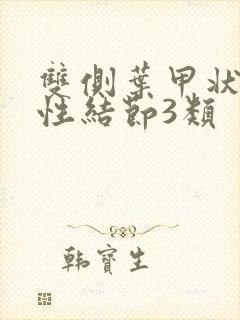 雙側葉甲狀
性結節3類
韩寶生